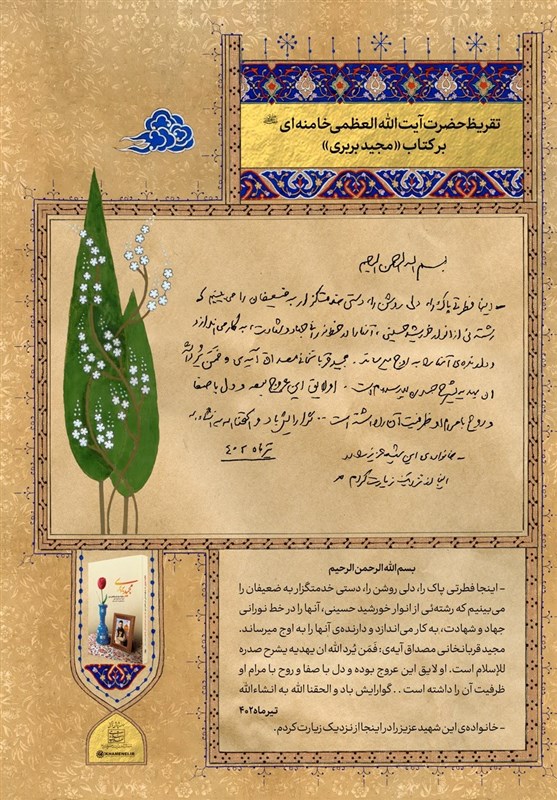 تقریظ حضرت آیت الله العظمی خامنه ای
بر کتاب «مجید بربری»
بسم الله الرحمن الرحیم
- اینجا فطرتی پاک را، دلی روشن را، دستی خدمتگزار به ضعیفان را می‌بینیم که
رشته‌ئی از انوار خورشید حسینی، آنها را در خط نورانی جهاد و شهادت، به کار می‌اندازد
و دارنده‌ی آنها را به اوج میرساند. مجید قربانخانی مصداق آیه‌ی و فمن یرد الله
ان یهدیه یشرح صدره للاسلام است. او لایق این عروج بوده و دل با صفا
و روح با مرام او ظرفیت آن را داشته است .. گوارایش باد و الحقنا الله به انشاءالله
تیرماه ۴۰۲
- خانواده‌ی این شهید عزیز را در
اینجا از نزدیک زیارت کردم
بسم الله الرحمن الرحیم
- اینجا فطرتی پاک را، دلی روشن را، دستی خدمتگزار به ضعیفان را
می‌بینیم که رشته‌ئی از انوار خورشید حسینی، آنها را در خط نورانی
جهاد و شهادت، به کار می‌اندازد و دارنده‌ی آنها را به اوج میرساند.
مجید قربانخانی مصداق آیه‌ی: فمَن یُرد الله ان یهدیه یشرح صدره
للإسلام است. او لایق این عروج بوده و دل با صفا و روح با مرام او
ظرفیت آن را داشته است . . گوارایش باد و الحقنا الله به انشاءالله
تیر ماه ۴۰۲
- خانواده‌ی این شهید عزیز را در اینجا از نزدیک زیارت کردم.
KHAMENEI.IR